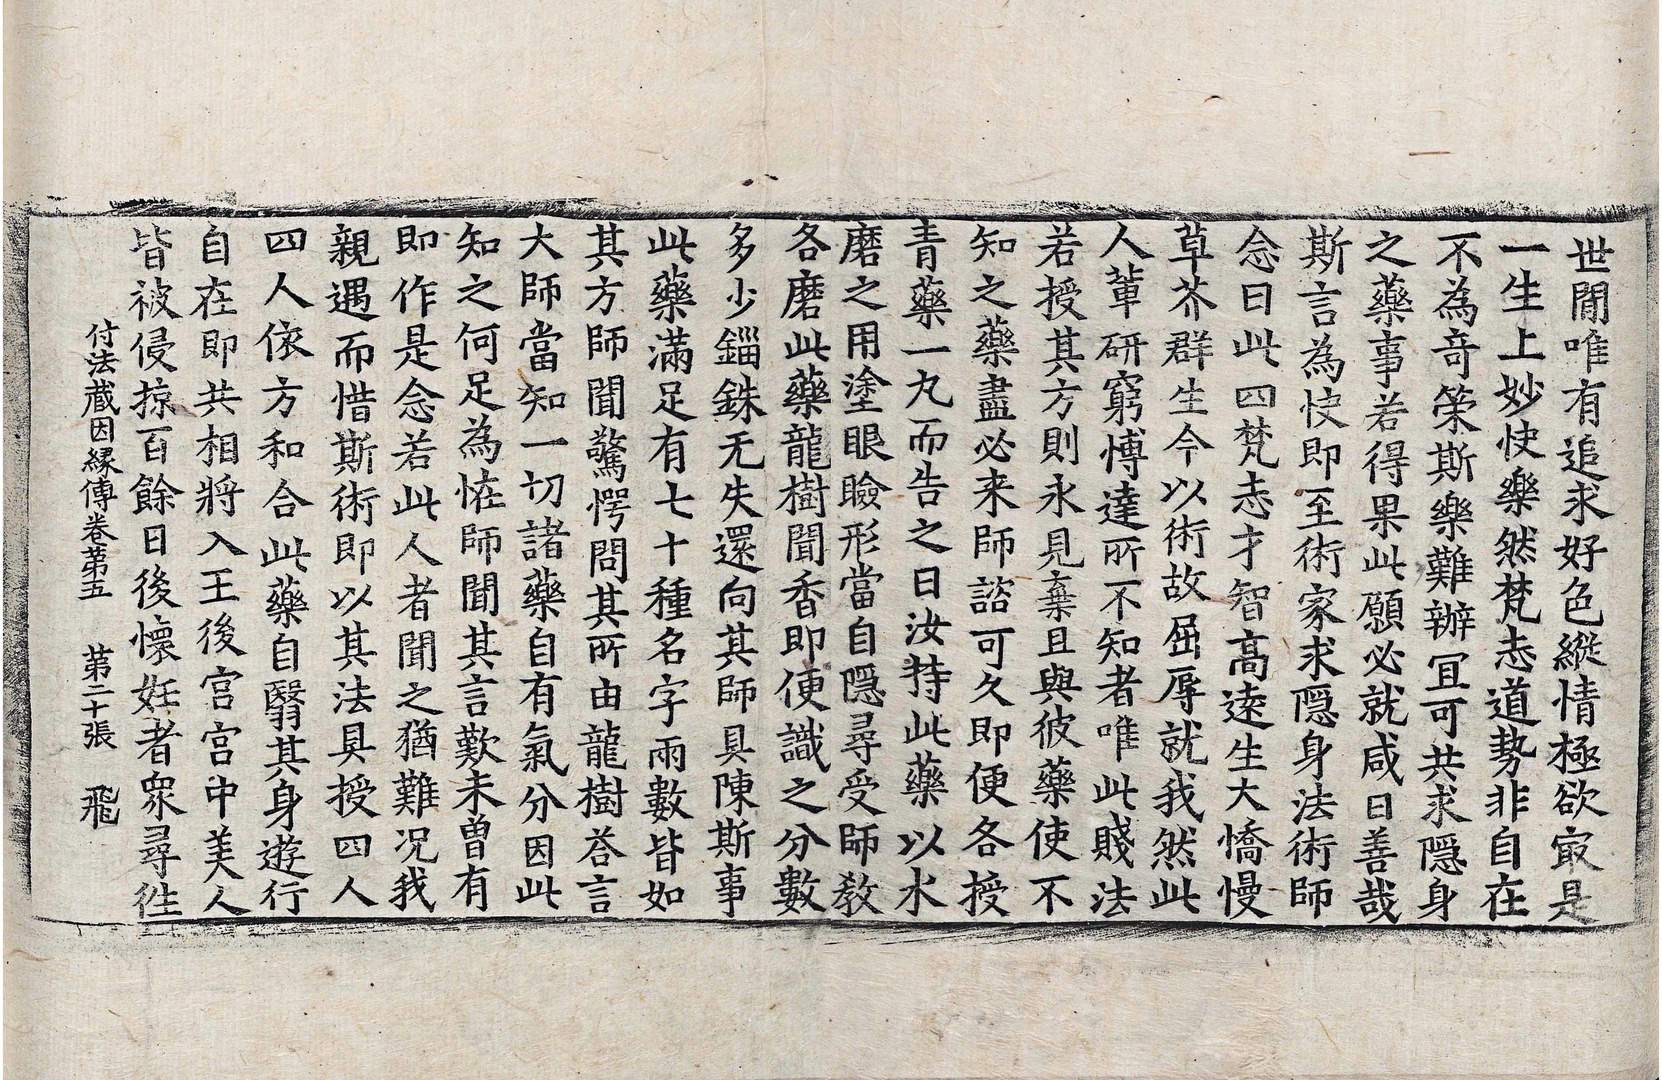 世閒唯有追求好色縱情極欲冣是
一生上妙快樂然梵志道勢非自在
不為竒策斯樂難辦冝可共求隱身
之藥事若得果此願必就咸曰善哉
斯言為快即至術家求隱身法術師
念曰此四梵志才智髙逺生大憍慢
草芥群生今以術故屈辱就我然此
人軰研窮博達所不知者唯此賤法
若授其方則永見棄且與彼藥使不
知之藥盡必来師諮可久即便各授
青藥一九而告之曰汝持此藥以水
磨之用塗眼瞼形當自隱尋受師教
各磨此藥龍樹聞香即便識之分數
多少錙銖无失還向其師具陳斯事
此藥滿足有七十種名字兩數皆如
其方師聞驚愕問其所由龍樹荅言
大師當知一切諸藥自有氣分因此
知之何足為恠師聞其言歎未曽有
即作是念若此人者聞之猶難况我
親遇而惜斯術即以其法具授四人
四人依方和合此藥自翳其身遊行
自在即共相將入王後宮宮中美人
皆被侵掠百餘日後懷妊者衆尋徃
付法藏因縁傳卷苐五　苐二十張　飛